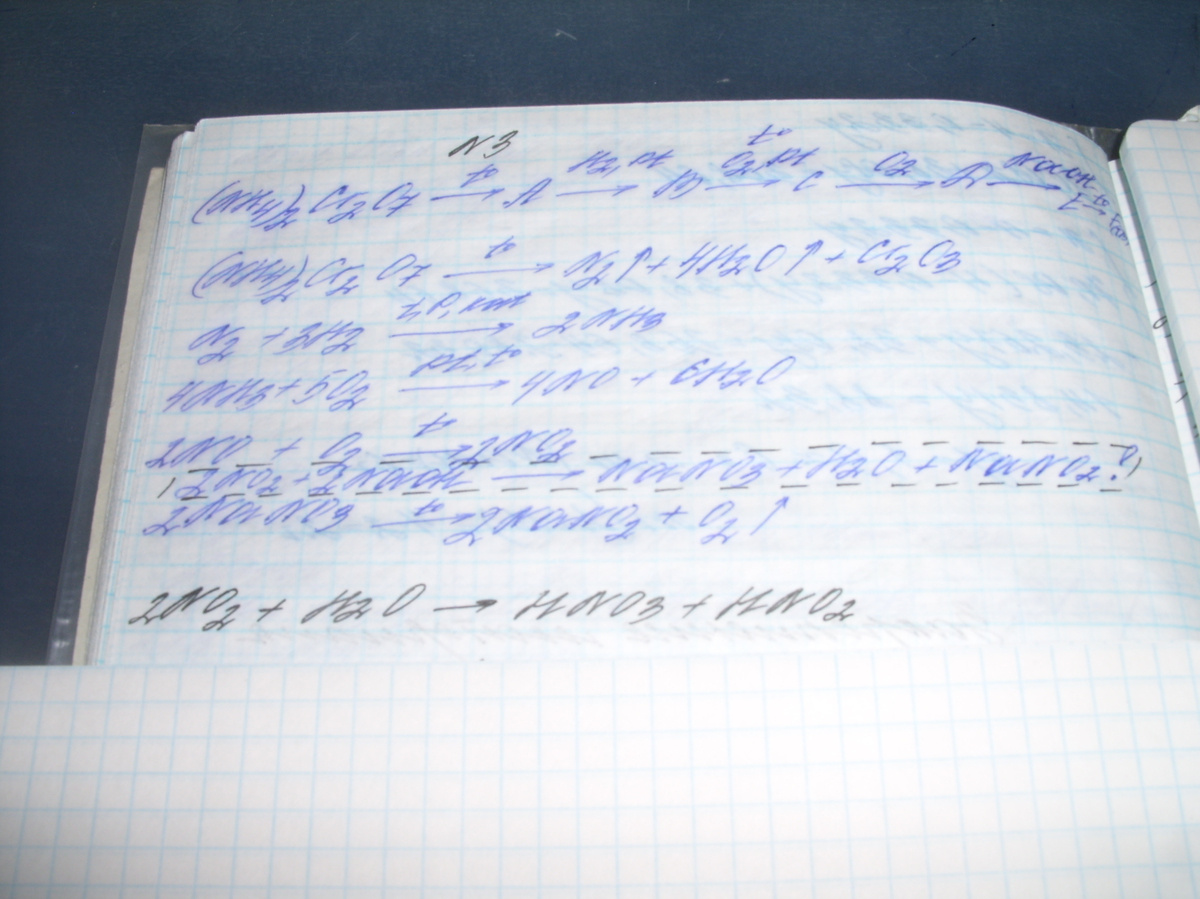 N3
(NH4)2Cr2O7 —t°→ A —H2, Pt→ B —t° O2, Pt→ C —O2→ D —NaOH→
E —t°→
(NH4)2Cr2O7 —t°→ N2↑ + 4H2O↑ + Cr2O3
N2 + 3H2 —t, P, кат→ 2NH3
4NH3 + 5O2 —Pt, t°→ 4NO + 6H2O
2NO + O2 —t°→ 2NO2
2NO2 + 2NaOH → NaNO3 + H2O + NaNO2 ?
2NaNO3 —t°→ 2NaNO2 + O2↑
2NO2 + H2O → HNO3 + HNO2